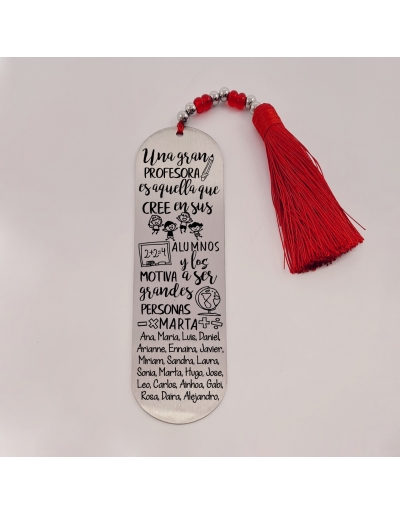 Una gran
PROFESORA
es aquella que
CREE en sus
2+2=4 ALUMNOS
y los
MOTIVA a ser
grandes
PERSONAS
-×MARTA+÷
Ana, Maria, Luis, Daniel
Arianne, Ennaira, Javier,
Miriam, Sandra, Laura,
Sonia, Marta, Hugo, Jose,
Leo, Carlos, Ainhoa, Gabi,
Rosa, Daira, Alejandro,